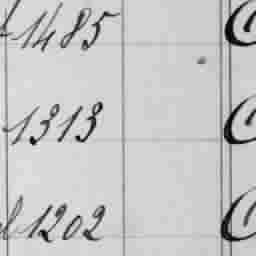 1485
1313
1202